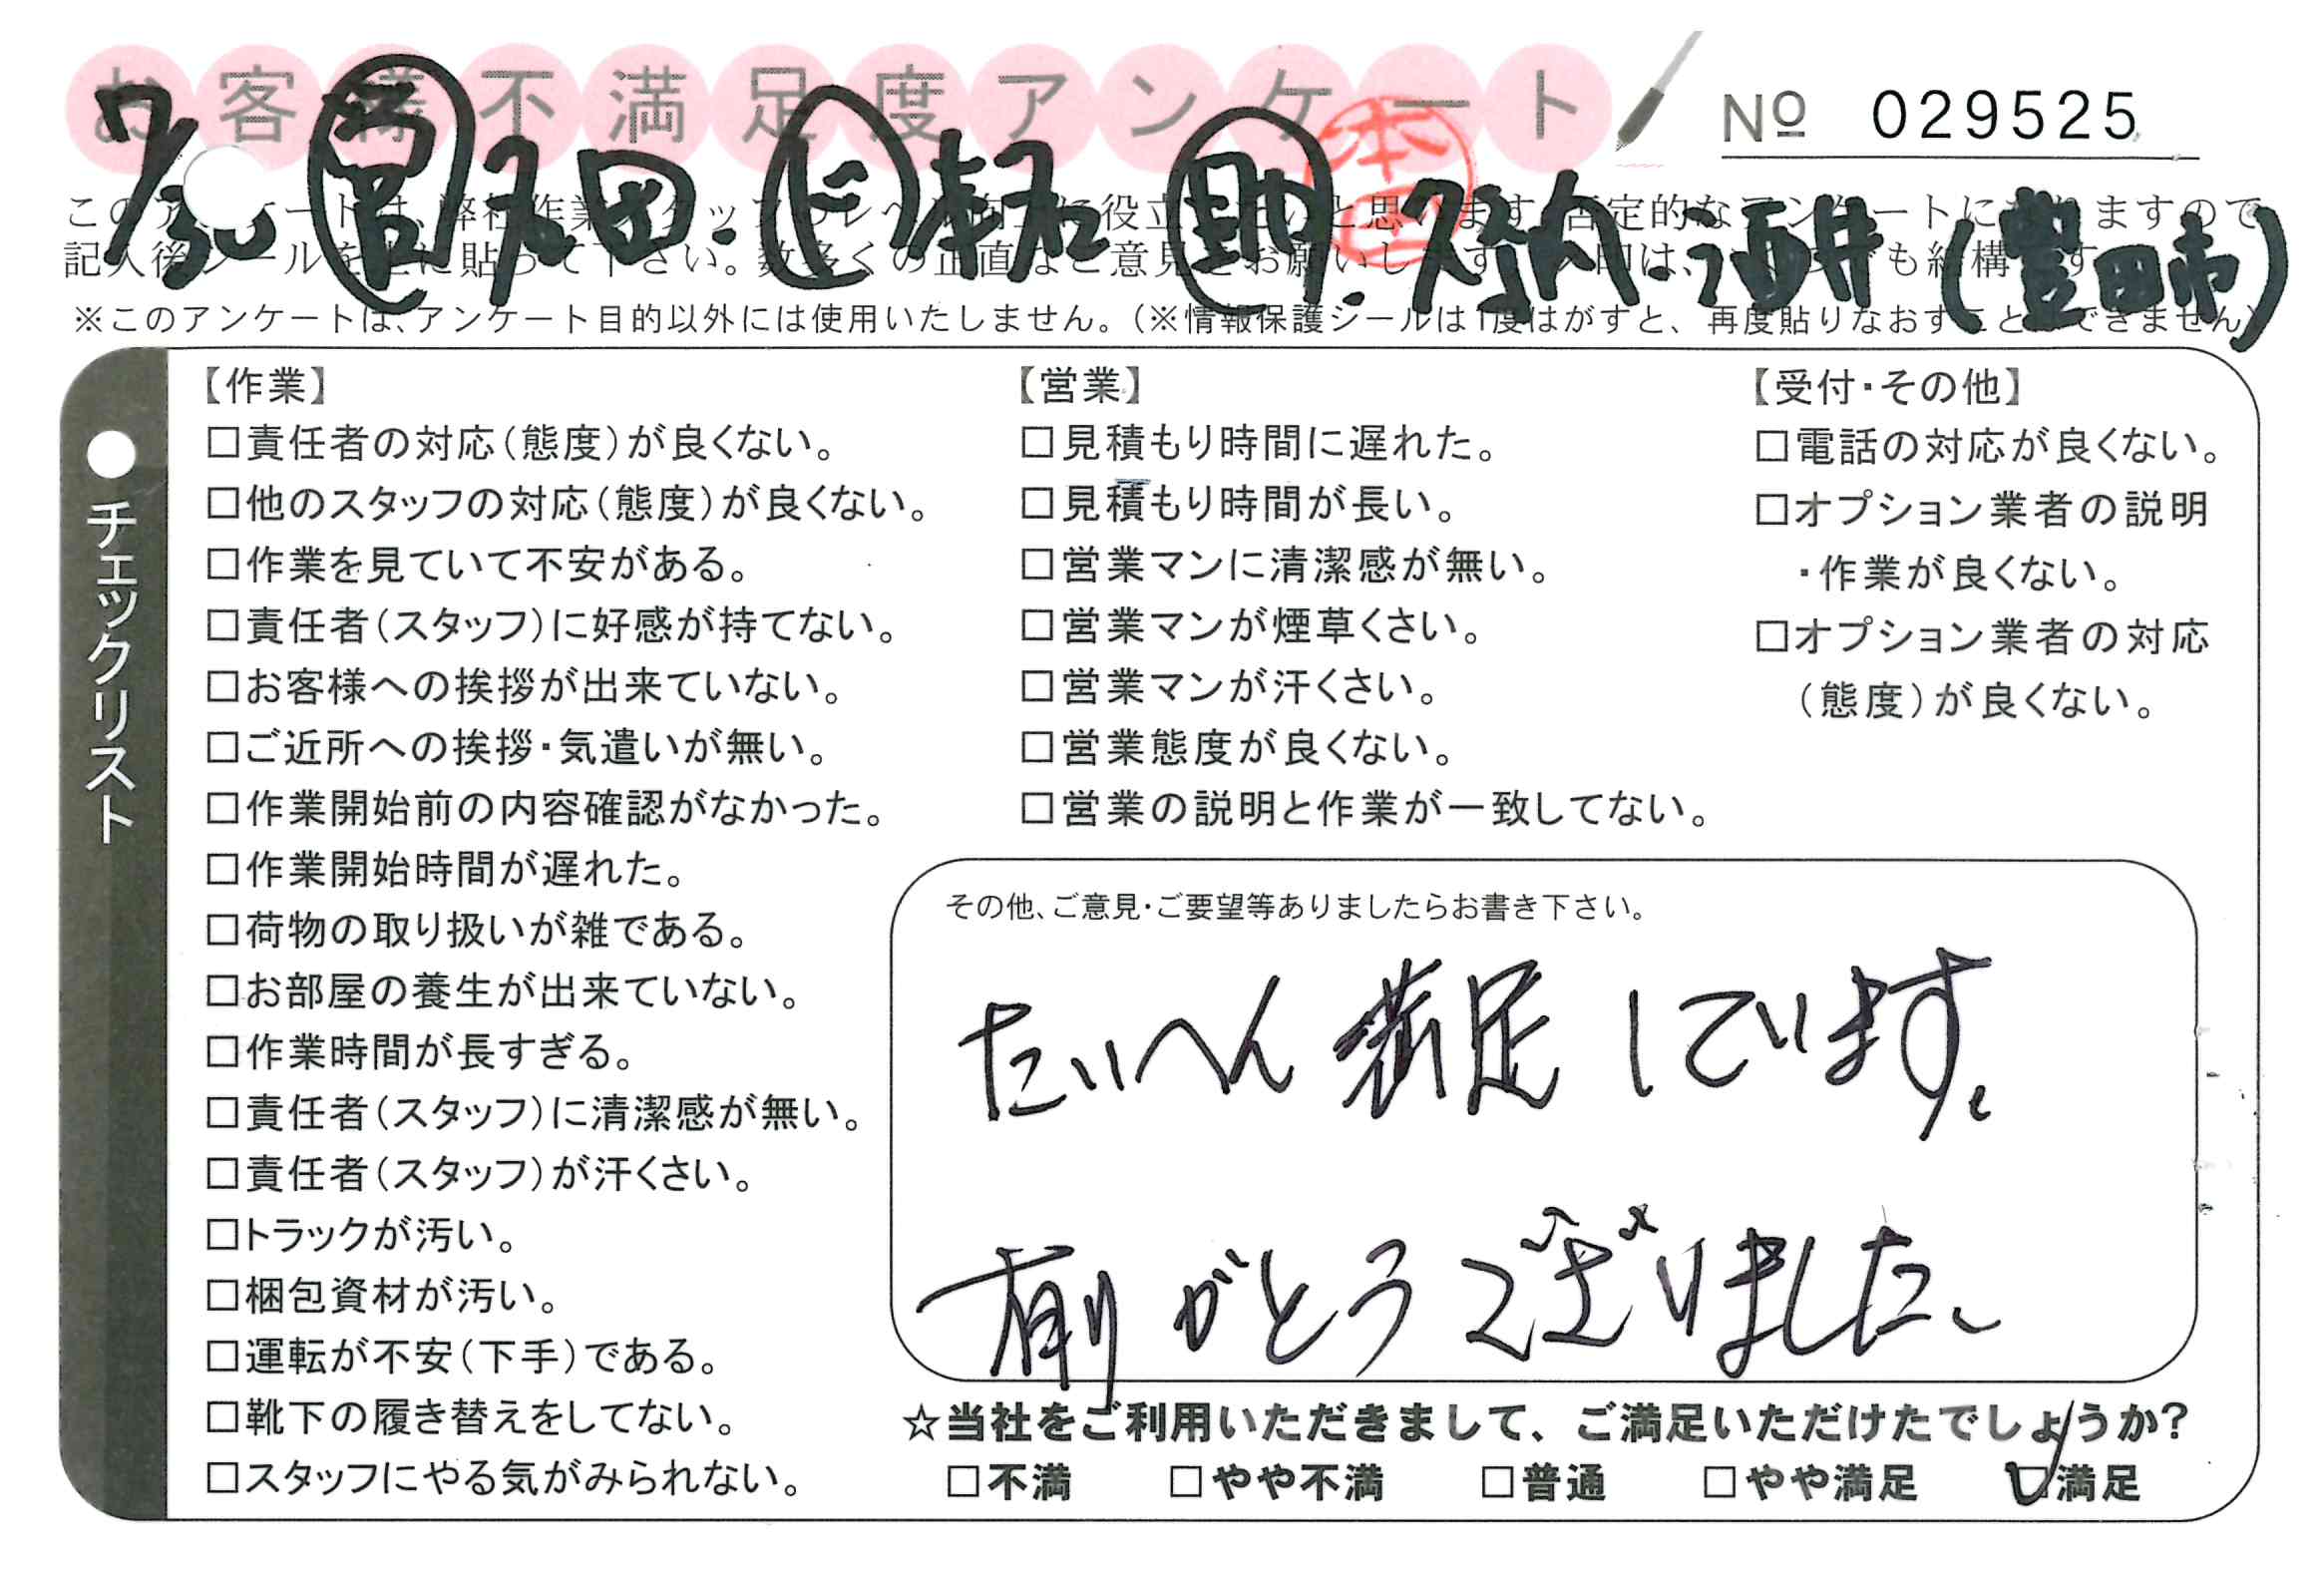 お客様不満足度アンケート No 029525
7/30 営 久田. ド 本名 助. 久保内.酒井 (豊田市)
本
このアンケートは、弊社作業 役立 と思います 否定的なアンケートになりますので
記入後シールを上に貼って下さい。数多くの正直なご意見をお願いします も結構です
※このアンケートは、アンケート目的以外には使用いたしません。(※情報保護シールは1度はがすと、再度貼りなおすことはできません)
●チェックリスト
【作業】
□責任者の対応(態度)が良くない。
□他のスタッフの対応(態度)が良くない。
□作業を見ていて不安がある。
□責任者(スタッフ)に好感が持てない。
□お客様への挨拶が出来ていない。
□ご近所への挨拶・気遣いが無い。
□作業開始前の内容確認がなかった。
□作業開始時間が遅れた。
□荷物の取り扱いが雑である。
□お部屋の養生が出来ていない。
□作業時間が長すぎる。
□責任者(スタッフ)に清潔感が無い。
□責任者(スタッフ)が汗くさい。
□トラックが汚い。
□梱包資材が汚い。
□運転が不安(下手)である。
□靴下の履き替えをしてない。
□スタッフにやる気がみられない。
【営業】
□見積もり時間に遅れた。
□見積もり時間が長い。
□営業マンに清潔感が無い。
□営業マンが煙草くさい。
□営業マンが汗くさい。
□営業態度が良くない。
□営業の説明と作業が一致してない。
【受付・その他】
□電話の対応が良くない。
□オプション業者の説明
・作業が良くない。
□オプション業者の対応
(態度)が良くない。
その他、ご意見・ご要望等ありましたらお書き下さい。
たいへん満足しています。
有りがとうございました。
☆当社をご利用いただきまして、ご満足いただけたでしょうか?
□不満 □やや不満 □普通 □やや満足 ☑満足